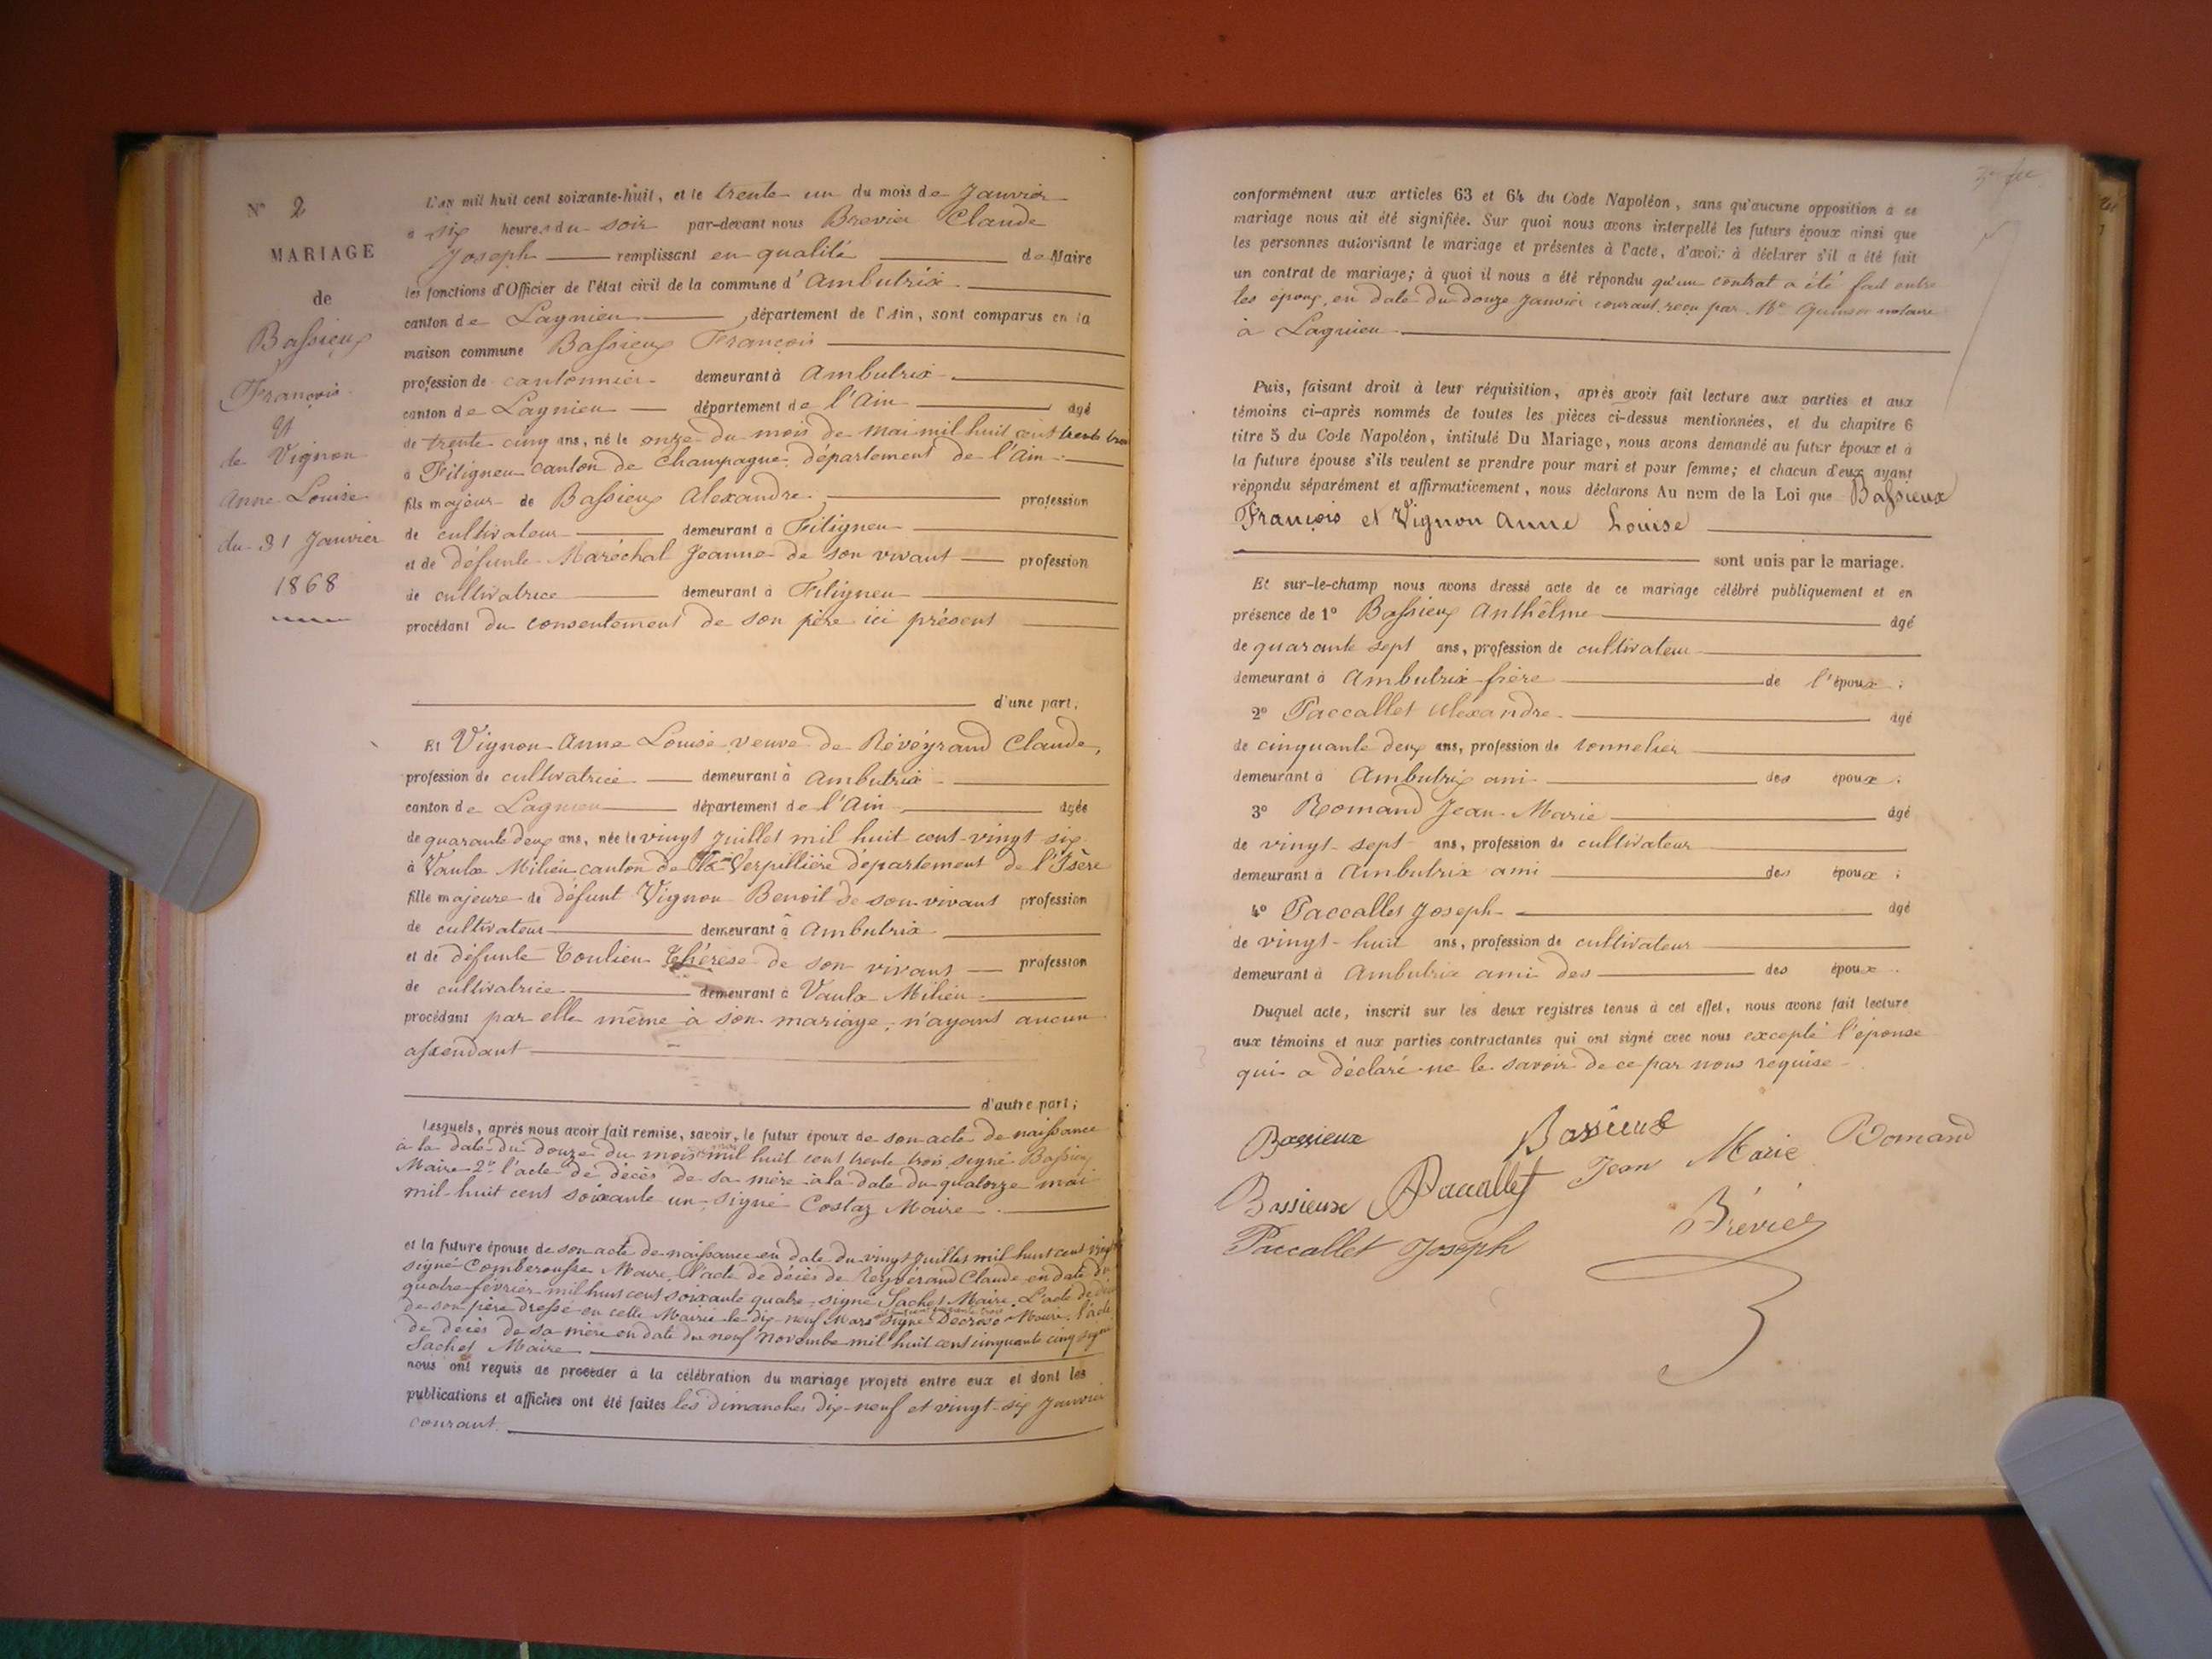 N° 2
MARIAGE
de
Bassieux
François
et
de Vignon
Anne Louise
du 31 Janvier
1868
L'an mil huit cent soixante-huit, et le trente un du mois de Janvier
à six heures du soir par-devant nous Brevier Claude
Joseph remplissant en qualité de Maire
les fonctions d'Officier de l'état civil de la commune d'Ambutrix
canton de Lagnieu, département de l'Ain, sont comparus en la
maison commune Bassieux François
profession de cantonnier demeurant à Ambutrix
canton de Lagnieu département de l'Ain âgé
de trente cinq ans, né le onze du mois de Mai mil huit cent trente trois
à Fitigneu canton de Champagne, département de l'Ain
fils majeur de Bassieux Alexandre profession
de cultivateur demeurant à Fitigneu
et de défunte Maréchal Jeanne de son vivant profession
de cultivatrice demeurant à Fitigneu
procédant du consentement de son père ici présent
d'une part,
Et Vignon Anne Louise veuve de Révéyrand Claude,
profession de cultivatrice demeurant à Ambutrix
canton de Lagnieu département de l'Ain, âgée
de quarante deux ans, née le vingt Juillet mil huit cent vingt six
à Vaulx Milieu canton de La Verpillière département de l'Isère
fille majeure de défunt Vignon Benoit de son vivant profession
de cultivateur demeurant à Ambutrix
et de défunte Toulieu Thérèse de son vivant profession
de cultivatrice demeurant à Vaulx Milieu
procédant par elle même à son mariage, n'ayant aucun
assendant
d'autre part;
Lesquels, après nous avoir fait remise, savoir, le futur époux de son acte de naissance
à la date du douze du mois mai mil huit cent trente trois signé Bassieux
Maire 2° l'acte de décès de sa mère à la date du quatorze mai
mil huit cent soixante un, signé Costaz Maire
et la future épouse de son acte de naissance en date du vingt Juillet mil huit cent vingt
signé Comberousse Maire, l'acte de décès de Reyverand Claude en date du
quatre février mil huit cent soixante quatre, signé Sachet Maire, L'acte de décès
de son père dressé en cette Mairie le dix neuf Mars signé Maire, l'acte
de décès de sa mère en date du neuf Novembre mil huit cent cinquante cinq signé
Sachet Maire
nous ont requis de procéder à la célébration du mariage projeté entre eux et dont les
publications et affiches ont été faites les dimanches dix-neuf et vingt-six Janvier
courant.
conformément aux articles 63 et 64 du Code Napoléon, sans qu'aucune opposition à ce
mariage nous ait été signifiée. Sur quoi nous avons interpellé les futurs époux ainsi que
les personnes autorisant le mariage et présentes à l'acte, d'avoir à déclarer s'il a été fait
un contrat de mariage; à quoi il nous a été répondu qu'un contrat a été fait entre
les époux, en date du douze Janvier courant, reçu par Me notaire
à Lagnieu
Puis, faisant droit à leur réquisition, après avoir fait lecture aux parties et aux
témoins ci-après nommés de toutes les pièces ci-dessus mentionnées, et du chapitre 6
titre 5 du Code Napoléon, intitulé Du Mariage, nous avons demandé au futur époux et à
la future épouse s'ils veulent se prendre pour mari et pour femme; et chacun d'eux ayant
répondu séparément et affirmativement, nous déclarons Au nom de la Loi que Bassieux
François et Vignon Anne Louise
sont unis par le mariage.
Et sur-le-champ nous avons dressé acte de ce mariage célébré publiquement et en
présence de 1° Bassieux Anthelme âgé
de quarante sept ans, profession de cultivateur
demeurant à Ambutrix frère de l'époux;
2° Paccallet Alexandre âgé
de cinquante deux ans, profession de tonnelier
demeurant à Ambutrix ami des époux;
3° Romand Jean-Marie âgé
de vingt-sept ans, profession de cultivateur
demeurant à Ambutrix ami des époux;
4° Paccallet Joseph âgé
de vingt-huit ans, profession de cultivateur
demeurant à Ambutrix ami des des époux.
Duquel acte, inscrit sur les deux registres tenus à cet effet, nous avons fait lecture
aux témoins et aux parties contractantes qui ont signé avec nous excepté l'épouse
qui a déclaré ne le savoir de ce par nous requise
Bassieux Bassieux
Jean Marie Romand
Bassieux Paccallet
Brévier
Paccallet Joseph